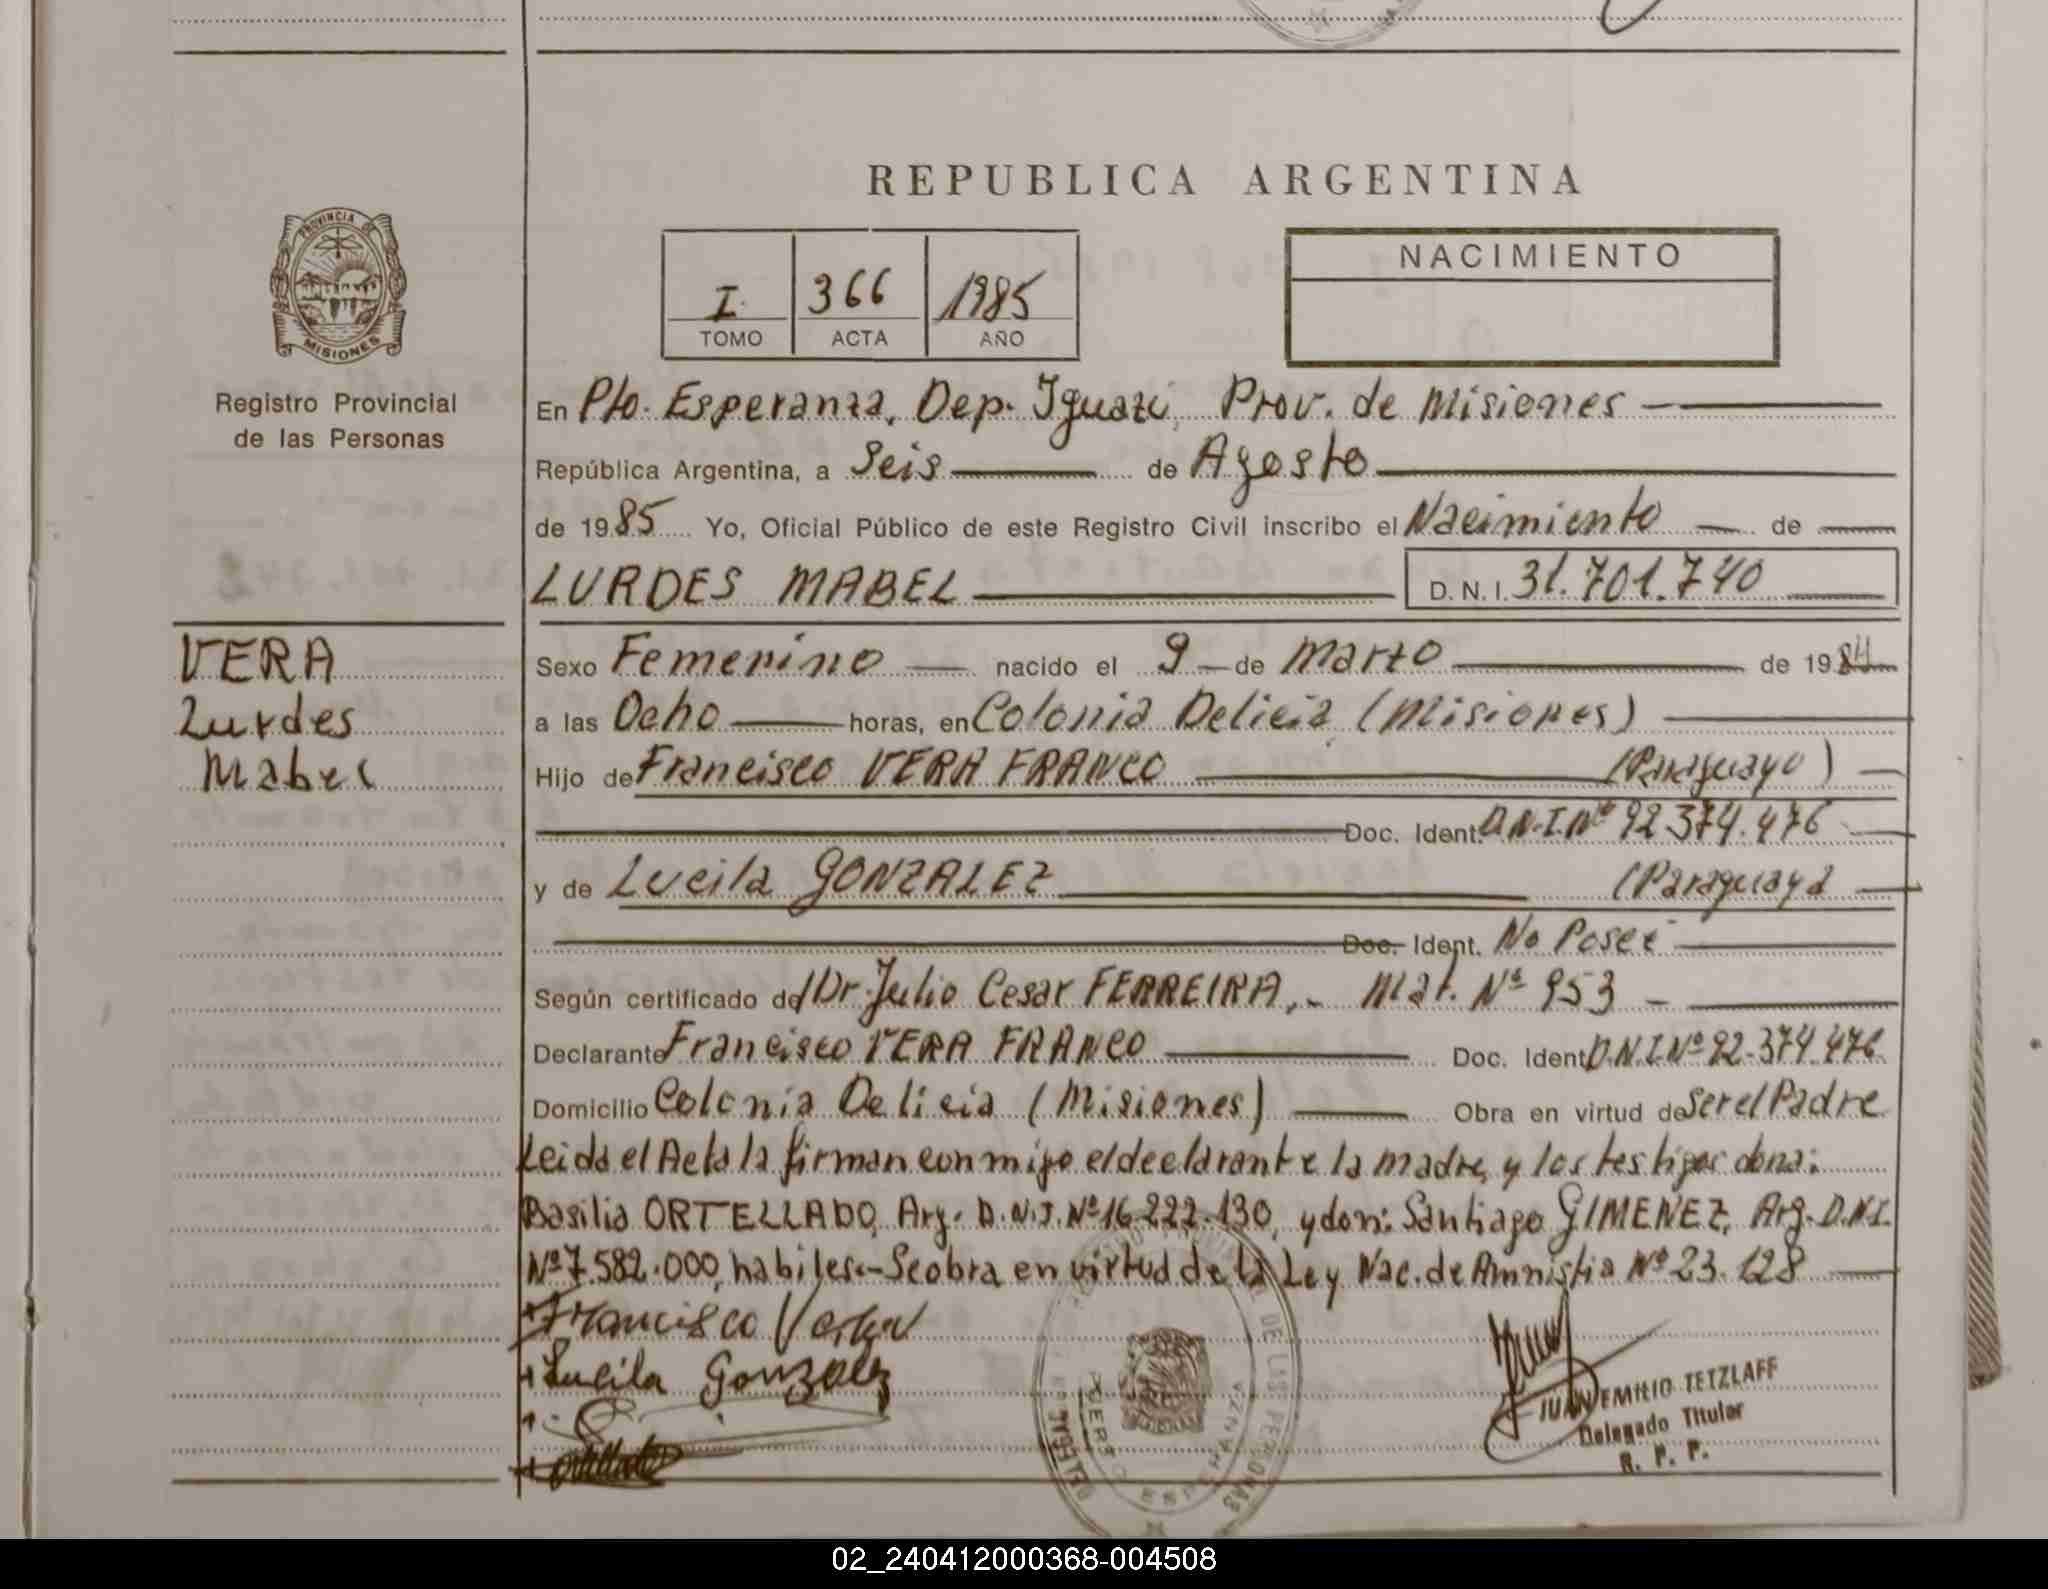 REPUBLICA ARGENTINA
PROVINCIA DE
MISIONES
Registro Provincial
de las Personas
I 366 1985
TOMO ACTA AÑO
NACIMIENTO
En Pto. Esperanza, Dep. Iguazú, Prov. de Misiones
República Argentina, a Seis de Agosto
de 1985 Yo, Oficial Público de este Registro Civil inscribo el Nacimiento de
LURDES MABEL D.N.I. 31.701.740
VERA
Lurdes
Mabel
Sexo Femenino nacido el 9 de Marzo de 1984
a las Ocho horas, en Colonia Delicia (Misiones)
Hijo de Francisco VERA FRANCO (Paraguayo)
Doc. Ident. D.N.I.Nº 92.374.476
y de Lucila GONZALEZ (Paraguaya
Doc. Ident. No Posee
Según certificado del Dr. Julio Cesar FERREIRA,- Mat. Nº 953
Declarante Francisco VERA FRANCO Doc. Ident D.N.I.Nº 92.374.476
Domicilio Colonia Delicia (Misiones) Obra en virtud de Ser el Padre
Leida el Acta la firman conmigo el declarante la madre, y los testigos dona:
Basilia ORTELLADO, Arg. D.N.I. Nº 16.222.130, y don: Santiago GIMENEZ, Arg. D.N.I.
Nº 7.582.000, habiles.- Se obra en virtud de la Ley Nac. de Amnistia Nº 23.128
Francisco Vera
Lucila Gonzalez
DE LAS PERSONAS
PUERTO ESPERANZA
JUAN EMILIO TETZLAFF
Delegado Titular
R. P. P.
02_240412000368-004508